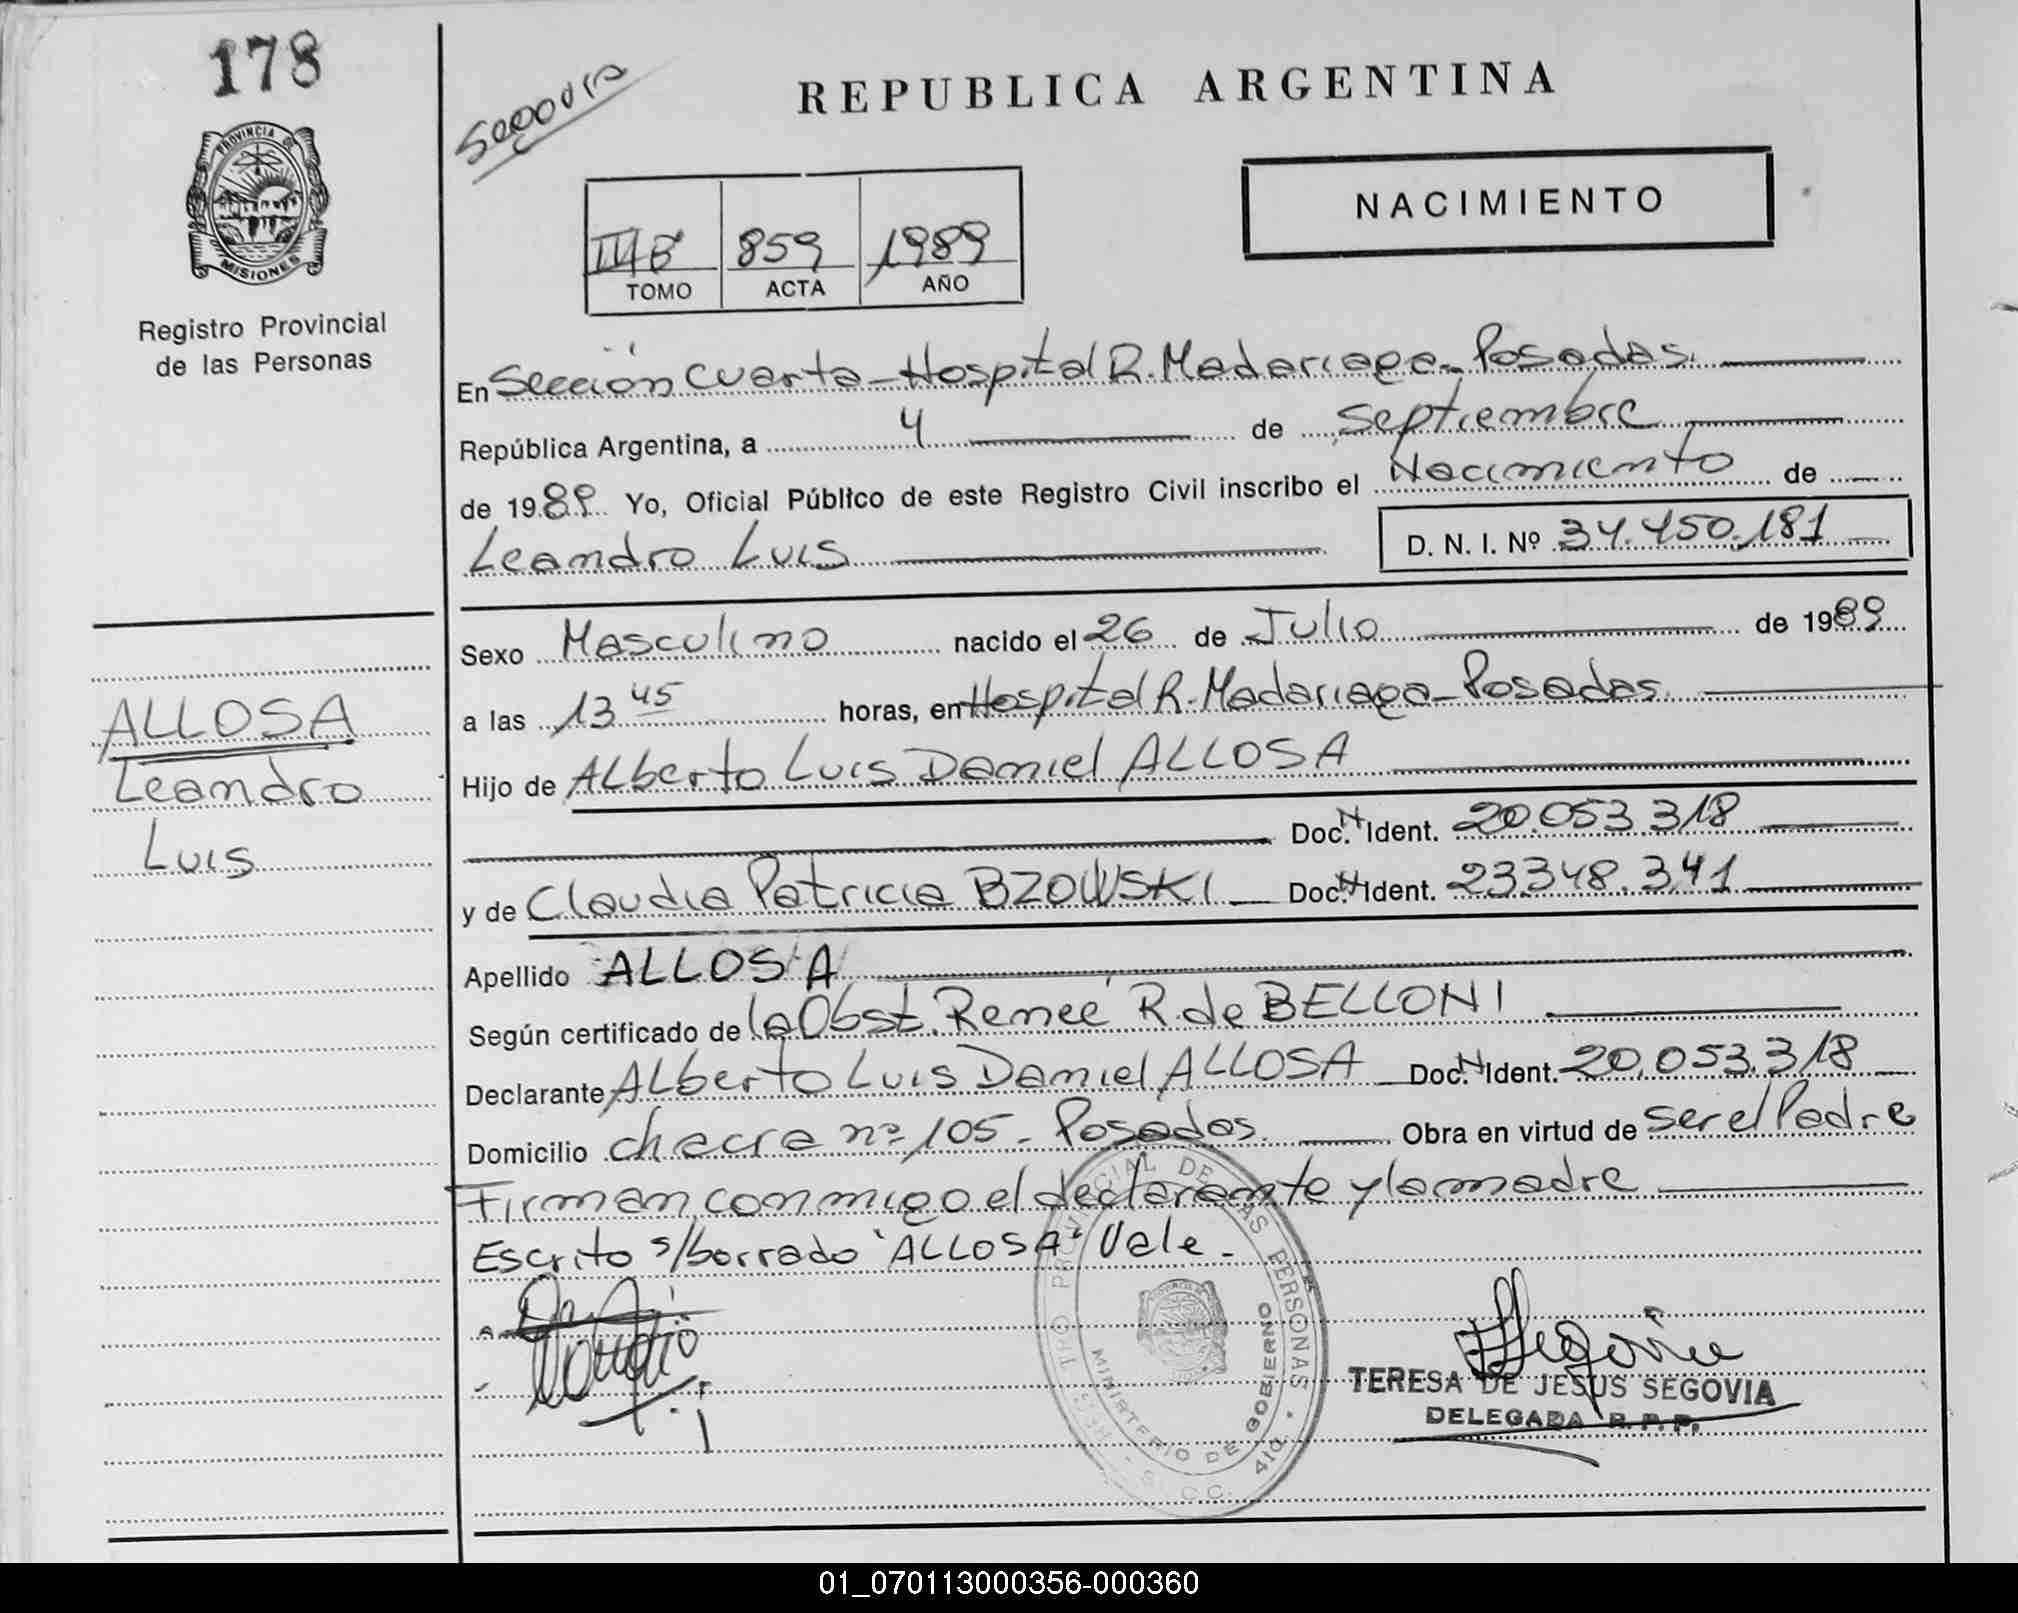 178
Segovia
REPUBLICA ARGENTINA
PROVINCIA DE
MISIONES
Registro Provincial
de las Personas
NACIMIENTO
III B 859 1989
TOMO ACTA AÑO
En Sección Cuarta - Hospital R. Madariaga - Posadas.
República Argentina, a 4 de Septiembre
de 1989 Yo, Oficial Público de este Registro Civil inscribo el Nacimiento de
Leandro Luis D. N. I. Nº 34.450.181
Sexo Masculino nacido el 26 de Julio de 1989
a las 13 45 horas, en Hospital R. Madariaga - Posadas.
Hijo de Alberto Luis Daniel ALLOSA
Doc. N Ident. 20.053.318
y de Claudia Patricia BZOWSKI Doc. N Ident. 23348.341
Apellido ALLOSA
Según certificado de la Obst. Reneé R. de BELLONI
Declarante Alberto Luis Daniel ALLOSA Doc. N Ident. 20.053.318
Domicilio chacra nº 105 - Posadas. Obra en virtud de ser el Padre
Firman conmigo el declarante y la madre
Escrito s/borrado "ALLOSA" Vale.
ALLOSA
Leandro
Luis
PROVINCIAL DE LAS PERSONAS
MINISTERIO DE GOBIERNO
Segovia
TERESA DE JESUS SEGOVIA
DELEGADA R. P. P.
01_070113000356-000360